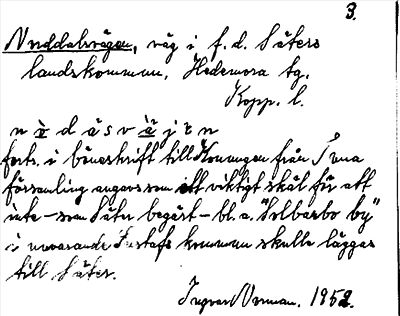 3.
Norddalsvägen, väg i f. d. Säters
landskommun, Hedemora tg.
Kopp. l.
n ä d å s v ä j e n
forts. i böneskrift till Konungen från
församling angavs som ett viktigt skäl för att
inte – som Säter begärt – bl. a. "Solbarbo by"
i nuvarande Gustafs kommun skulle läggas
till Säter.
Ingvar Norman. 1952.